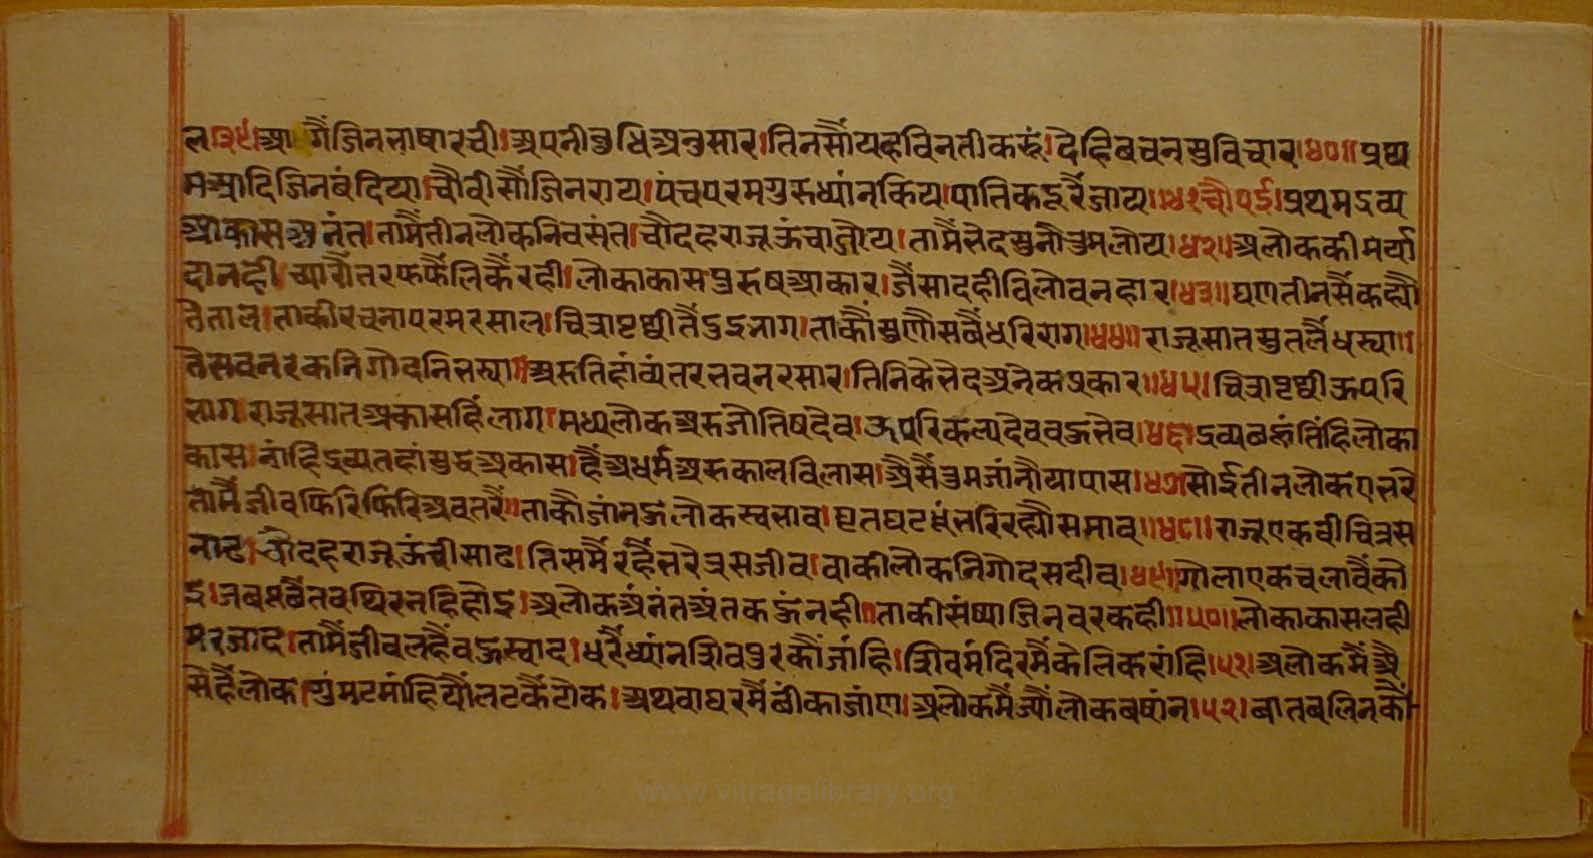 ल।३९।आगैंजिनभाषारची।अपनीबुधिअनुसार।तिनसौंयहविनतीकरूं।देहिबचनसुविचार।४०॥प्रथ
मआदिजिनबंदिया।चौवीसौंजिनराय।पंचपरमगुरुध्यांनकिय।पातिकदूरैंजाय॥४१चौपई।प्रथमद्रव्य
आकासअनंत।तामैंतीनलोकनिवसंत।चौदहराजूऊंचाजोय।तामैंभेदसुनौतुमलोय।४२।अलोककीमर्या
दानही।च्यारौंतरफफैलिकैंरही।लोकाकासपुरुषआकार।जैंसादहीविलोवनहार।४३॥घणतीनसैंकह्यौ
तेताल।ताकीरचनापरमरसाल।चित्राप्रथ्वीतैंदुइभाग।ताकौंसुणौसबैंधरिराग।४४॥राजूसातसुतलैंधस्या॥
तेसवनरकनिगोदनिभस्या॥अरुतिहांव्यंतरभवनरसार।तिनिकेभेदअनेकप्रकार॥४५।चित्राप्रथ्वीऊपरि
भाग।राजूसातअकासहिंलाग।मध्यलोकअरुजोतिषदेव।ऊपरिकल्पदेवबहुभेव।४६।द्रव्यबहुंतिंहिलोका
कास।नांहिद्रव्यतहांसुद्धअकास।हैंअधर्मअरुकालविलास।अैसैंतुमजांनौयापास।४७सोईतीनलोकएभरे
तामैंजीवफिरिफिरिअवतरैं॥ताकौजांनहुलोकस्वभाव।घृतघटज्युंभरिरह्यौसमाव॥४८॥राजूएकवीचित्रस
नाट।चौदहराजूऊंचीसाढ।तिसमैंरहैंभरेत्रसजीव।वाकीलोकनिगोदसदीव।४९।गोलाएकचलावैंको
इ।जबपूछैंतबथिरनहिहोइ।अलोकअनंतअंतकहुंनही॥ताकीसंष्याजिनवरकही॥५०॥लोकाकासलही
मरजाद।तामैंजीवलहैंबहुस्वाद।धरैंध्यांनशिवपुरकौंजांहि।शिवमंदिरमैंकेलिकरांहि।५१।अलोकमैंअै
सैहैंलोक।गुंमटमांहिज्यौंलटकैंटोक।अथवाघरमैंछींकाजांण।अलोकमैंज्यौंलोकबषांन।५२।बातबलिनकौं
www.vitragelibrary.org